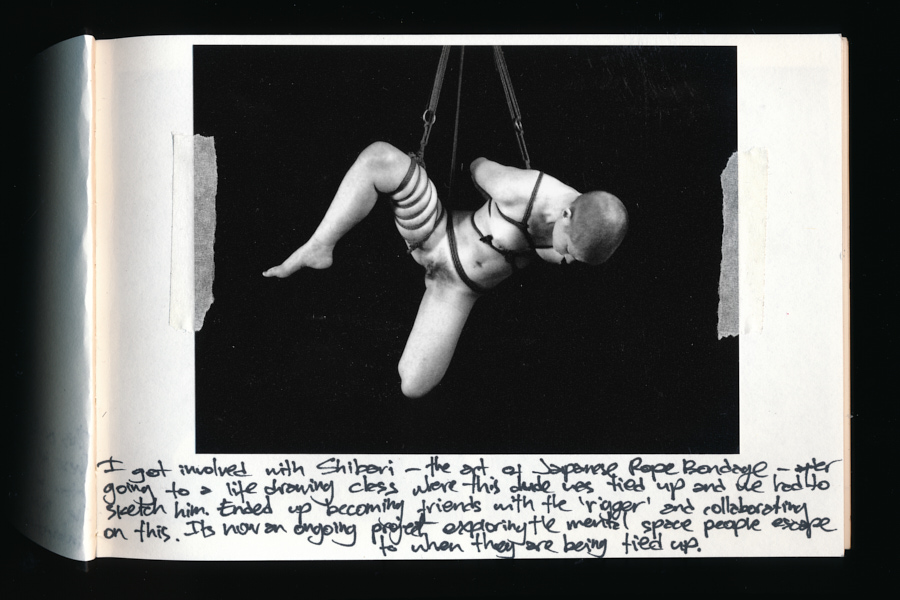 I got involved with Shibari – the art of Japanese Rope Bondage – after
going to a life drawing class were this dude was tied up and we had to
sketch him. Ended up becoming friends with the 'rigger' and collaborating
on this. Its now an ongoing project exploring the mental space people escape
to when they are being tied up.